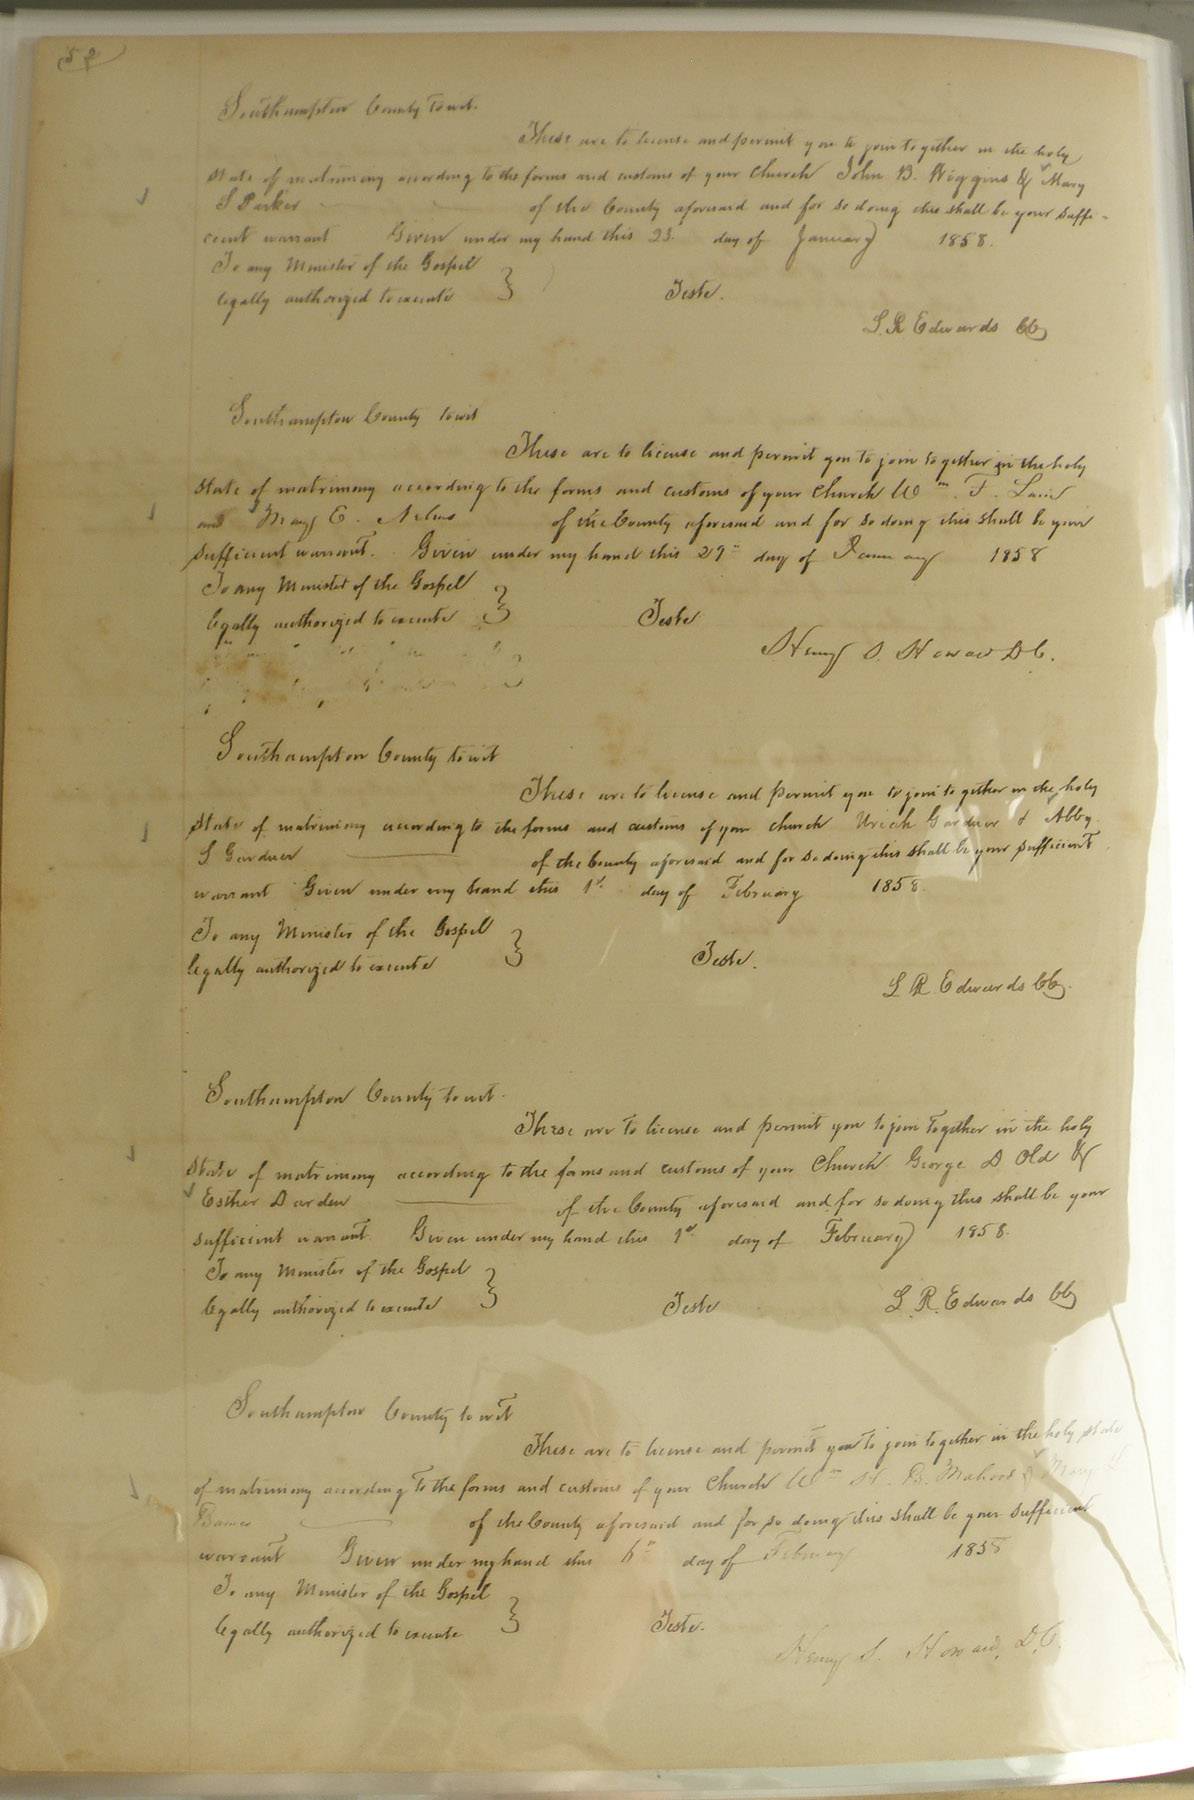 52
Southampton County to wit.
These are to license and permit you to join together in the holy
state of matrimony according to the forms and customs of your Church John B. Wiggins & Mary
S Parker of the County aforesaid and for so doing this shall be your suffi-
cient warrant Given under my hand this 23. day of January 1858.
To any Minister of the Gospel
legally authorized to execute } Teste.
L. R Edwards CC
Southampton County to wit
These are to license and permit you to join together in the holy
state of matrimony according to the forms and customs of your Church Wm. F. Lain
and Mary E. of the County aforesaid and for so doing this shall be your
sufficient warrant. Given under my hand this 29th day of January 1858
To any Minister of the Gospel
legally authorized to execute } Teste
Henry S. Howard D C.
Southampton County to wit
These are to license and permit you to join together in the holy
state of matrimony according to the forms and customs of your church Uriah Gardner & Abby
S Gardner of the County aforesaid and for so doing this shall be your sufficient
warrant Given under my hand this 1st day of February 1858.
To any Minister of the Gospel
legally authorized to execute } Teste.
L R. Edwards CC.
Southampton County to wit.
These are to license and permit you to join together in the holy
state of matrimony according to the forms and customs of your Church George D Old &
Esther Darden of the County aforesaid and for so doing this shall be your
sufficient warrant. Given under my hand this 1st day of February 1858.
To any Minister of the Gospel
legally authorized to execute } Teste L. R. Edwards CC
Southampton County to wit
These are to license and permit you to join together in the holy state
of matrimony according to the forms and customs of your Church Wm H. B. & Mary
of the County aforesaid and for so doing this shall be your sufficient
warrant Given under my hand this 6th day of February 1858
To any Minister of the Gospel
legally authorized to execute } Teste.
Henry S. Howard, D.C.